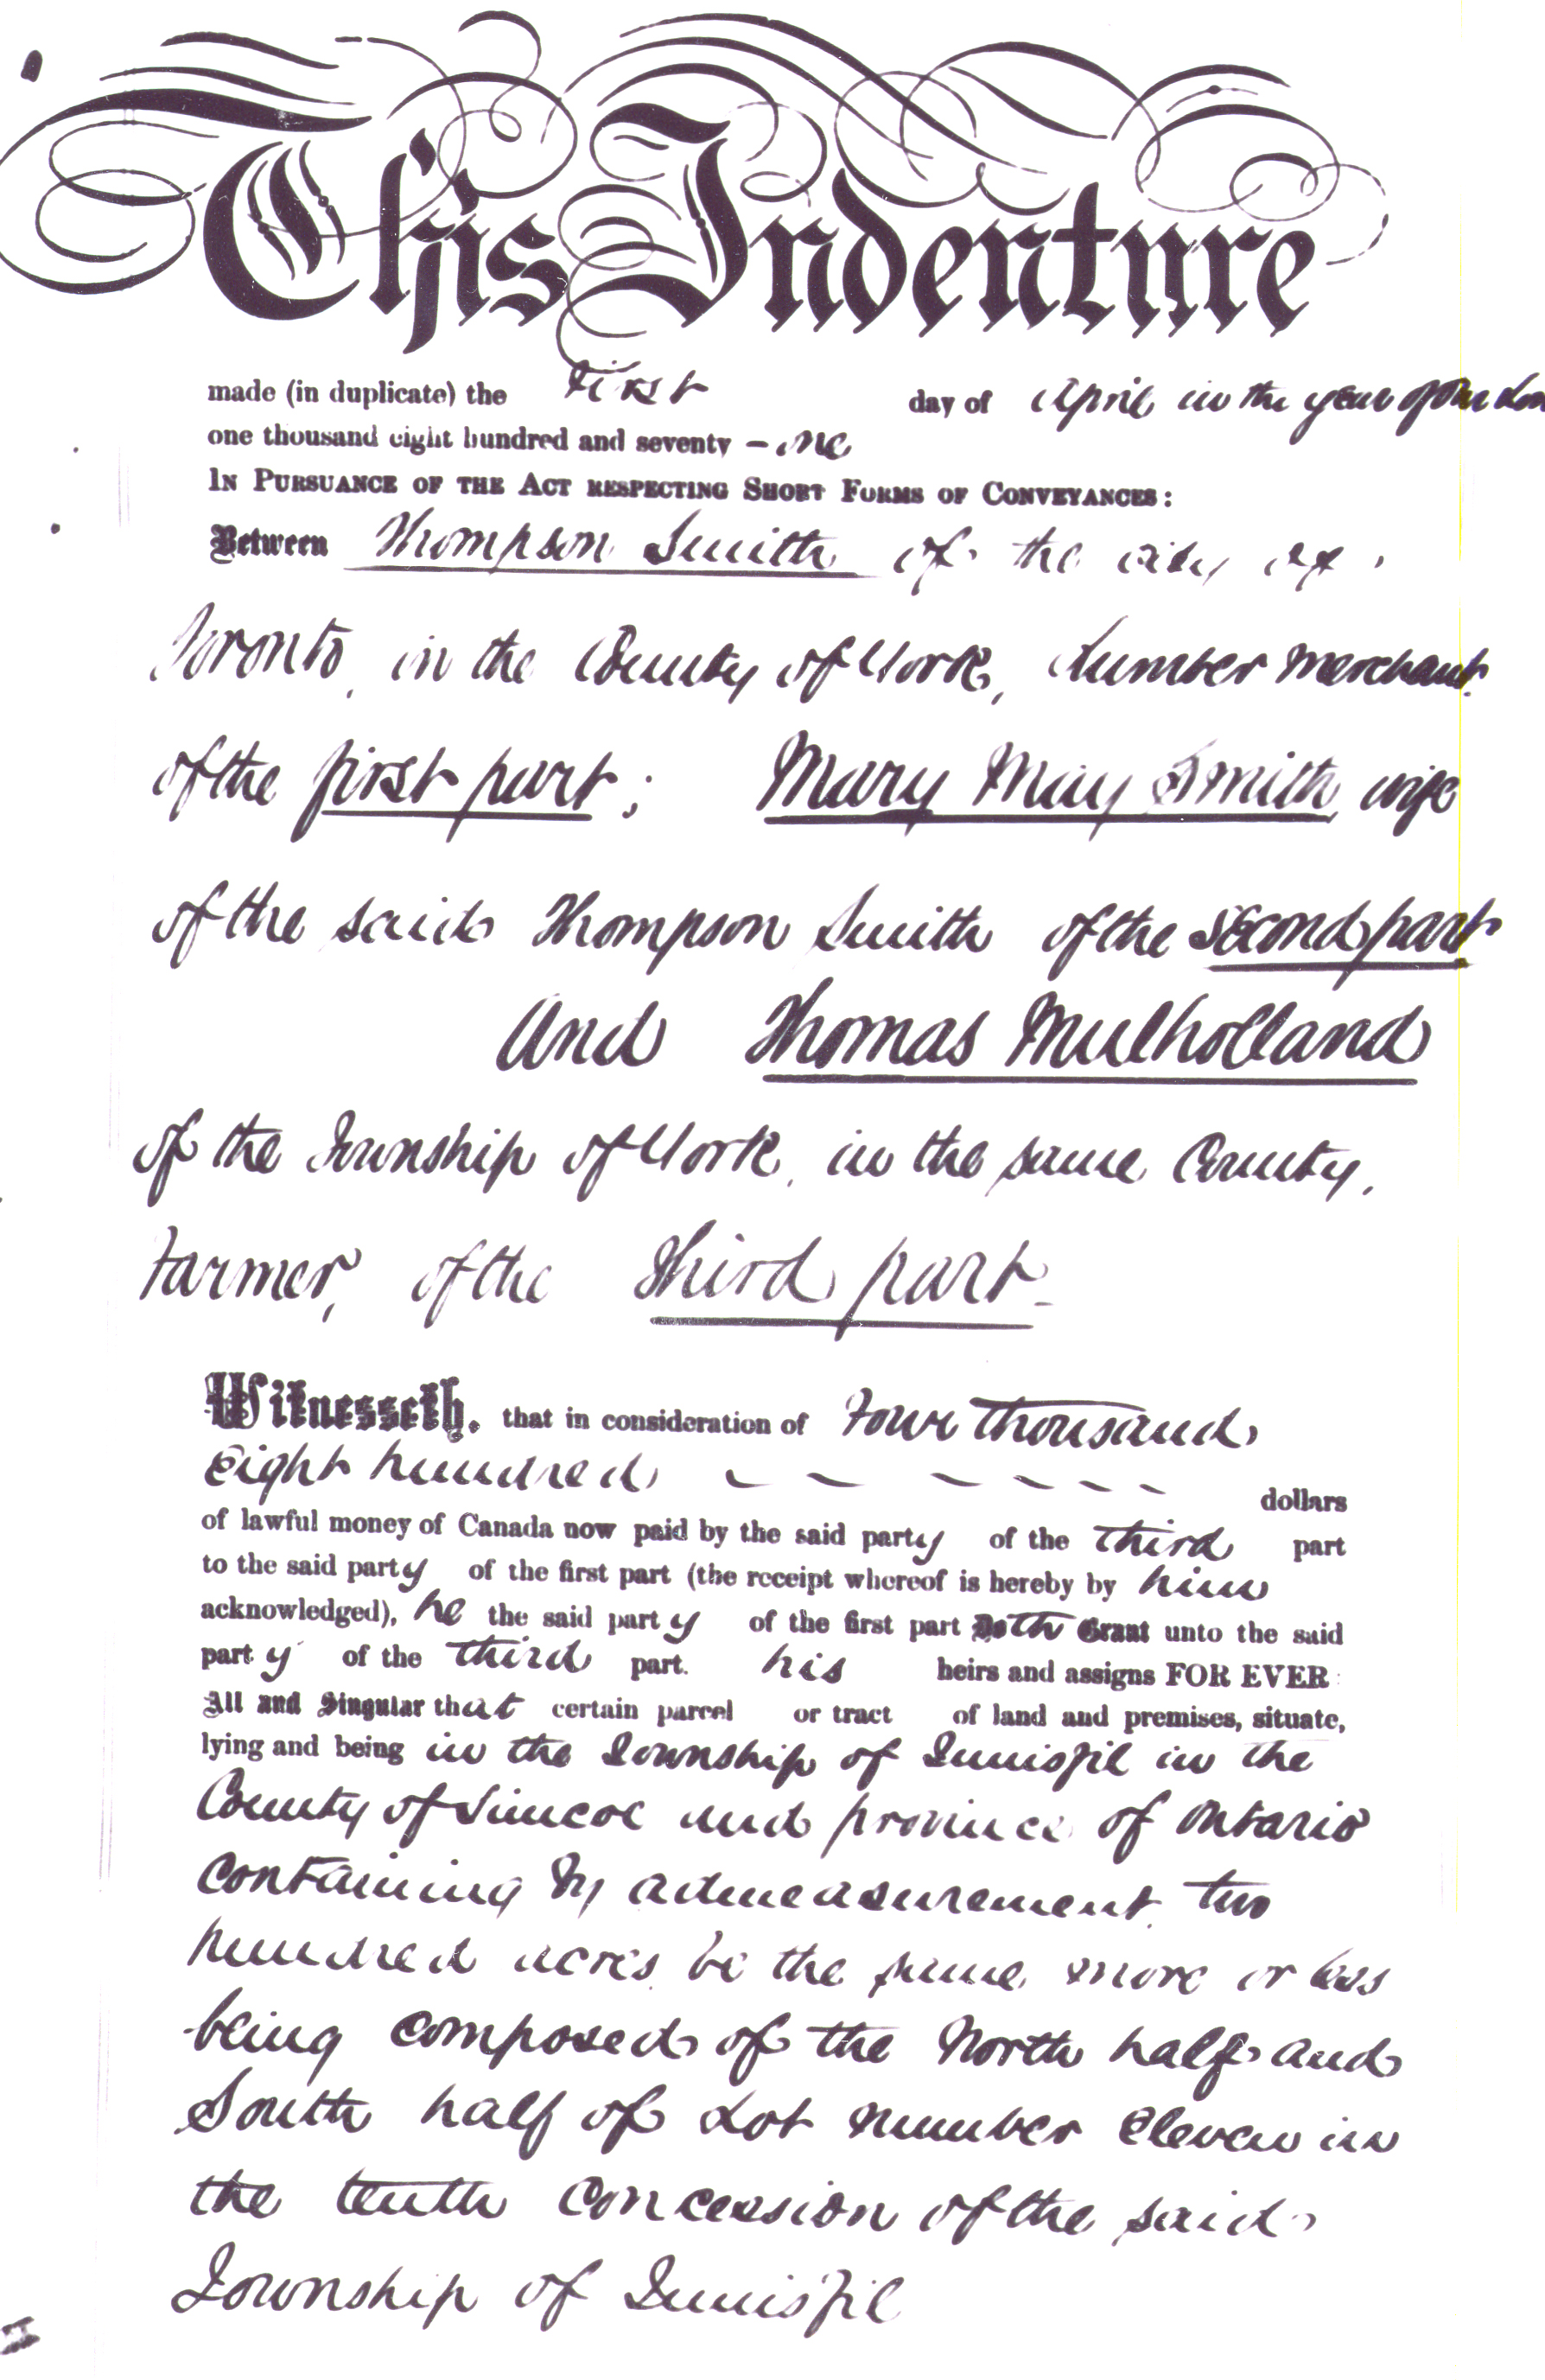 This Indenture
made (in duplicate) the First day of April in the year of our Lor
one thousand eight hundred and seventy - one
IN PURSUANCE OF THE ACT RESPECTING SHORT FORMS OF CONVEYANCES:
Between Thompson Smith of the city of
Toronto, in the County of York, Lumber Merchant
of the first part; Mary May Smith, wife
of the said Thompson Smith of the second part
And Thomas Mulholland
of the Township of York, in the same County,
Farmer, of the third part.
Witnesseth, that in consideration of Four thousand
Eight hundred - - - - - - - dollars
of lawful money of Canada now paid by the said party of the third part
to the said party of the first part (the receipt whereof is hereby by him
acknowledged), he the said party of the first part Doth Grant unto the said
party of the third part. his heirs and assigns FOR EVER:
All and Singular that certain parcel or tract of land and premises, situate,
lying and being in the Township of Innisfil in the
County of Simcoe and province of Ontario
Containing by admeasurement two
hundred acres be the same more or less
being composed of the North half and
South half of Lot number Eleven in
the tenth Concession of the said
Township of Innisfil